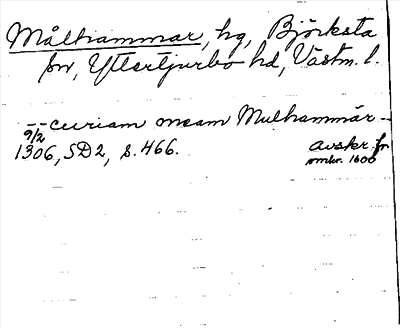 Målhammar, hg, Björksta
sn, Yttertjurbo hd, Västm. l.
-- curiam meam Mulhammar --
9/2
1306, SD2, s. 466.
Avskr. fr.
omkr. 1600